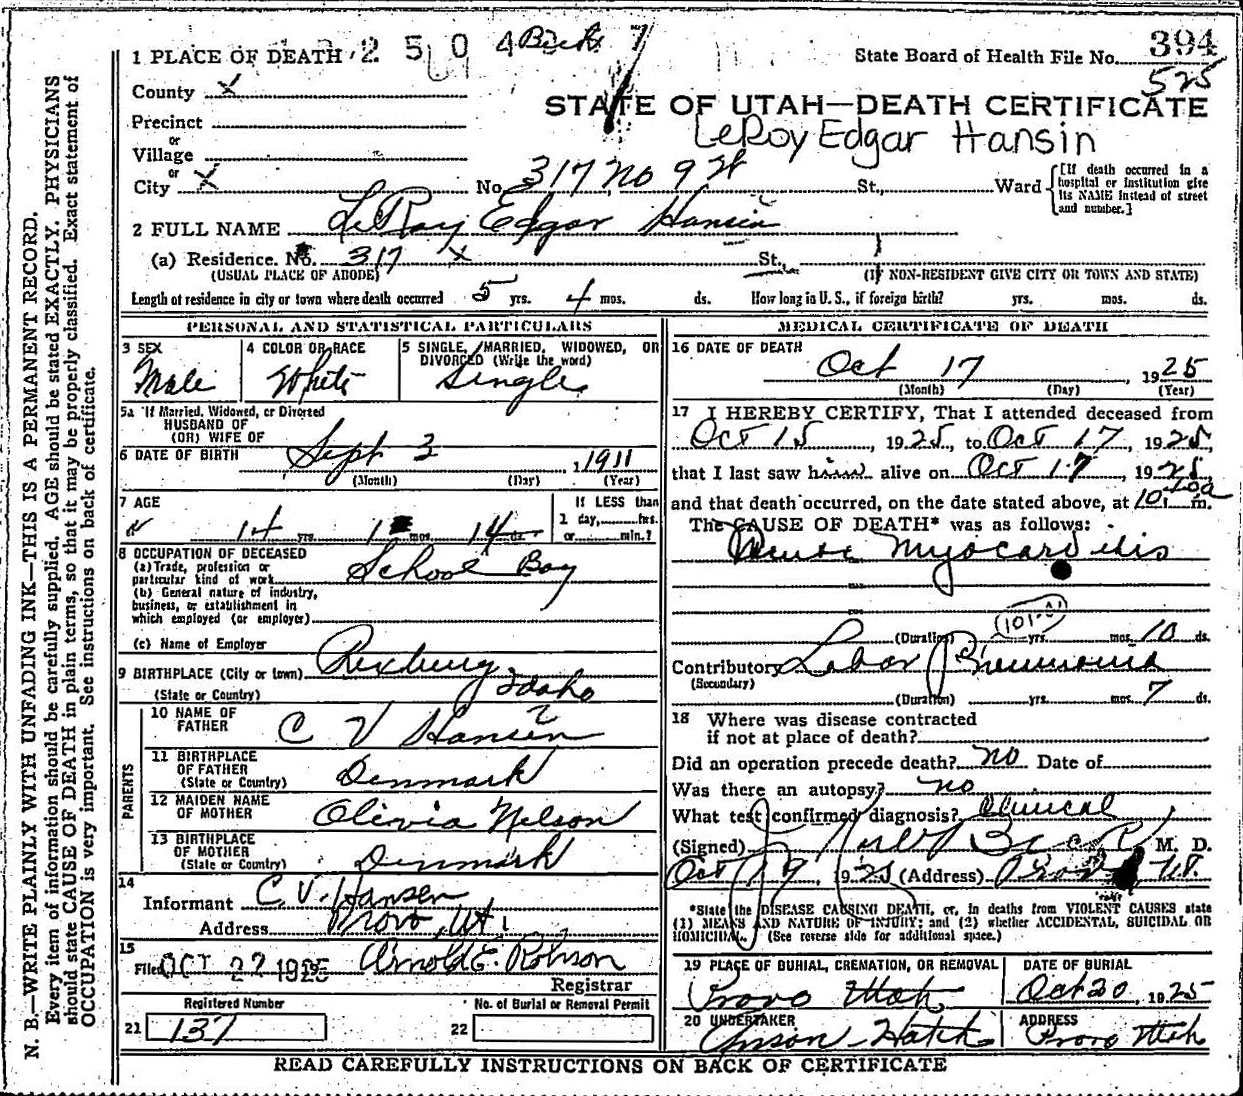 2 5 0 4
1 PLACE OF DEATH State Board of Health File No. 394
525
County X
STATE OF UTAH—DEATH CERTIFICATE
Precinct
LeRoy Edgar Hansin
or
Village
or
City X No. 317 No 9 W St., Ward {[If death occurred in a hospital or institution give its NAME instead of street and number.]
2 FULL NAME LeRoy Edgar Hansin
(a) Residence. No. 317 X St.,
(USUAL PLACE OF ABODE) (If NON-RESIDENT GIVE CITY OR TOWN AND STATE)
Length of residence in city or town where death occurred 5 yrs. 4 mos. ds. How long in U. S., if foreign birth? yrs. mos. ds.
PERSONAL AND STATISTICAL PARTICULARS
3 SEX 4 COLOR OR RACE 5 SINGLE, MARRIED, WIDOWED, OR
DIVORCED (Write the word)
Male White Single
5a If Married, Widowed, or Divorced
HUSBAND OF
(OR) WIFE OF
6 DATE OF BIRTH Sept 3, 1911
(Month) (Day) (Year)
7 AGE If LESS than
14 yrs. 1 mos. 14 ds. 1 day, hrs.
or min.?
8 OCCUPATION OF DECEASED
(a) Trade, profession or
particular kind of work School Boy
(b) General nature of industry,
business, or establishment in
which employed (or employer)
(c) Name of Employer
9 BIRTHPLACE (City or town) Rexburg,
(State or Country) Idaho
PARENTS
10 NAME OF
FATHER C V Hansen
11 BIRTHPLACE
OF FATHER
(State or Country) Denmark
12 MAIDEN NAME
OF MOTHER Olivia Nelson
13 BIRTHPLACE
OF MOTHER
(State or Country) Denmark
14
Informant C. V. Hansen
Address Provo, Ut.
15
Filed OCT 22 1925 Arnold E. Robison
Registrar
Registered Number No. of Burial or Removal Permit
21 137 22
MEDICAL CERTIFICATE OF DEATH
16 DATE OF DEATH
Oct 17, 1925
(Month) (Day) (Year)
17 I HEREBY CERTIFY, That I attended deceased from
Oct 15, 1925, to Oct 17, 1925,
that I last saw him alive on Oct 17, 1925,
and that death occurred, on the date stated above, at 10 a m.
The CAUSE OF DEATH* was as follows:
Myocarditis
(Duration) yrs. mos. 10 ds.
Contributory Lobar Pneumonia
(Secondary)
(Duration) yrs. mos. 7 ds.
18 Where was disease contracted
if not at place of death?
Did an operation precede death? no Date of
Was there an autopsy? no
What test confirmed diagnosis? Clinical
(Signed) M. D.
Oct 19, 1925 (Address) Provo Ut.
*State the DISEASE CAUSING DEATH, or, in deaths from VIOLENT CAUSES state
(1) MEANS AND NATURE OF INJURY; and (2) whether ACCIDENTAL, SUICIDAL OR
HOMICIDAL. (See reverse side for additional space.)
19 PLACE OF BURIAL, CREMATION, OR REMOVAL DATE OF BURIAL
Provo Utah Oct 20, 1925
20 UNDERTAKER ADDRESS
Hatch Provo Utah
READ CAREFULLY INSTRUCTIONS ON BACK OF CERTIFICATE
N. B.—WRITE PLAINLY WITH UNFADING INK—THIS IS A PERMANENT RECORD.
Every item of information should be carefully supplied. AGE should be stated EXACTLY. PHYSICIANS
should state CAUSE OF DEATH in plain terms, so that it may be properly classified. Exact statement of
OCCUPATION is very important. See instructions on back of certificate.